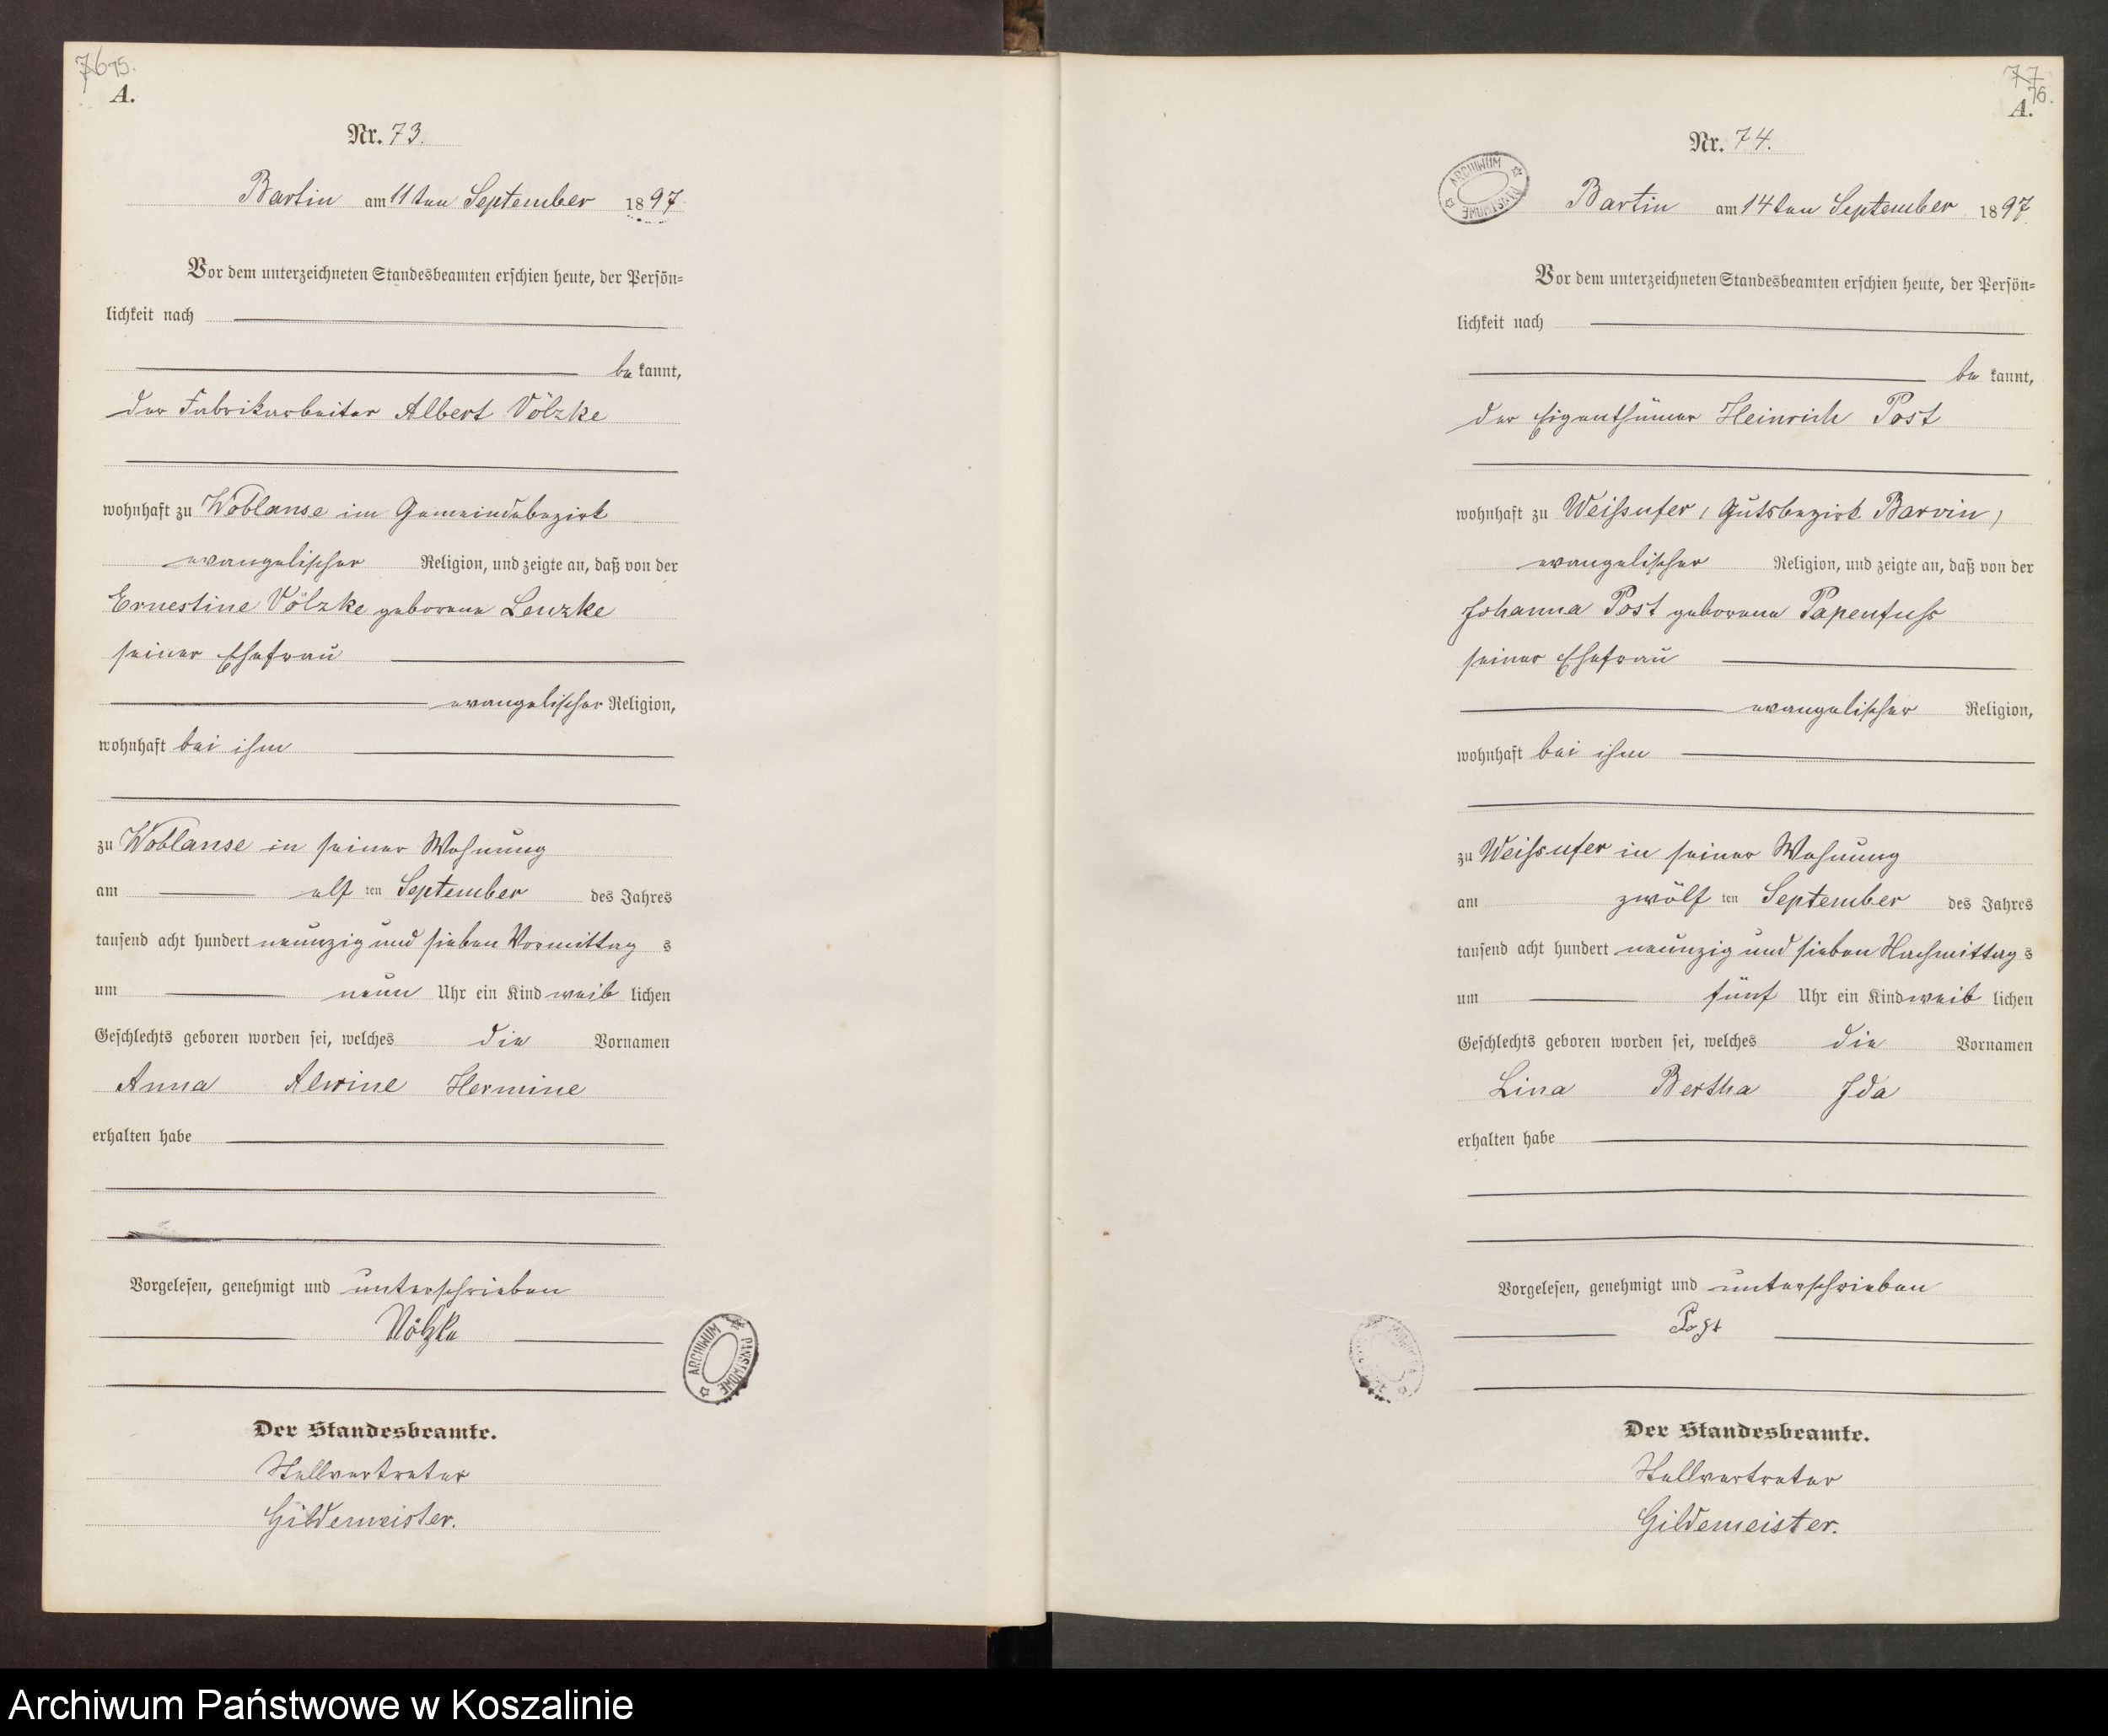 7675.
A.
Nr. 73.
Bartin am 11ten September 1897
Vor dem unterzeichneten Standesbeamten erschien heute, der Persön-
lichkeit nach
be kannt,
der Fabrikarbeiter Albert Völzke
wohnhaft zu Woblanse im Gemeindebezirk
evangelischer Religion, und zeigte an, daß von der
Ernestine Völzke geborene Lenzke
seiner Ehefrau
evangelischer Religion,
wohnhaft bei ihm
zu Woblanse in seiner Wohnung
am elf ten September des Jahres
tausend acht hundert neunzig und sieben Vormittag s
um neun Uhr ein Kind weib lichen
Geschlechts geboren worden sei, welches die Vornamen
Anna Alwine Hermine
erhalten habe
Vorgelesen, genehmigt und unterschrieben
Völzke
Der Standesbeamte.
Stellvertreter
Gildemeister.
ARCHIWUM PAŃSTWOWE
77
76.
A.
Nr. 74.
ARCHIWUM PAŃSTWOWE
Bartin am 14ten September 1897
Vor dem unterzeichneten Standesbeamten erschien heute, der Persön-
lichkeit nach
be kannt,
der Eigenthümer Heinrich Post
wohnhaft zu Weissufer, (Gutsbezirk Barvin)
evangelischer Religion, und zeigte an, daß von der
Johanna Post geborene Papenfuss
seiner Ehefrau
evangelischer Religion,
wohnhaft bei ihm
zu Weissufer in seiner Wohnung
am zwölf ten September des Jahres
tausend acht hundert neunzig und sieben Nachmittag s
um fünf Uhr ein Kind weib lichen
Geschlechts geboren worden sei, welches die Vornamen
Lina Bertha Ida
erhalten habe
Vorgelesen, genehmigt und unterschrieben
Post
Der Standesbeamte.
Stellvertreter
Gildemeister.
Archiwum Państwowe w Koszalinie